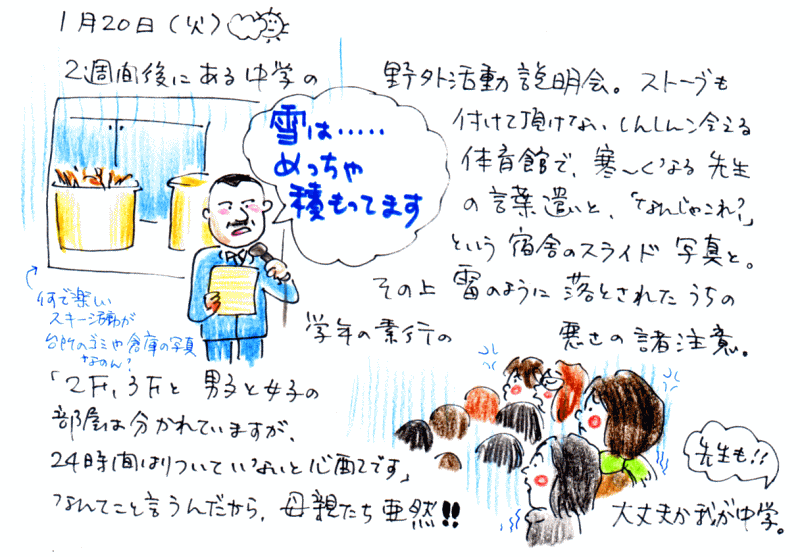 1月20日(火)
2週間後にある中学の 野外活動説明会。ストーブも
付けて頂けない、しんしんと冷える
体育館で、寒〜くなる先生
の言葉遣いと、「なんじゃこれ?」
という宿舎のスライド写真と。
その上 雷のように落とされたうちの
学年の素行の 悪さの諸注意。
雪は……
めっちゃ
積もってます
何で楽しい
スキー活動が
台所のゴミや倉庫の写真
なのん?
「2F、3Fと男子と女子の
部屋は分かれていますが、
24時間はりついていないと心配です」
なんてこと言うんだから、母親たち唖然!!
先生も!!
大丈夫か我が中学。